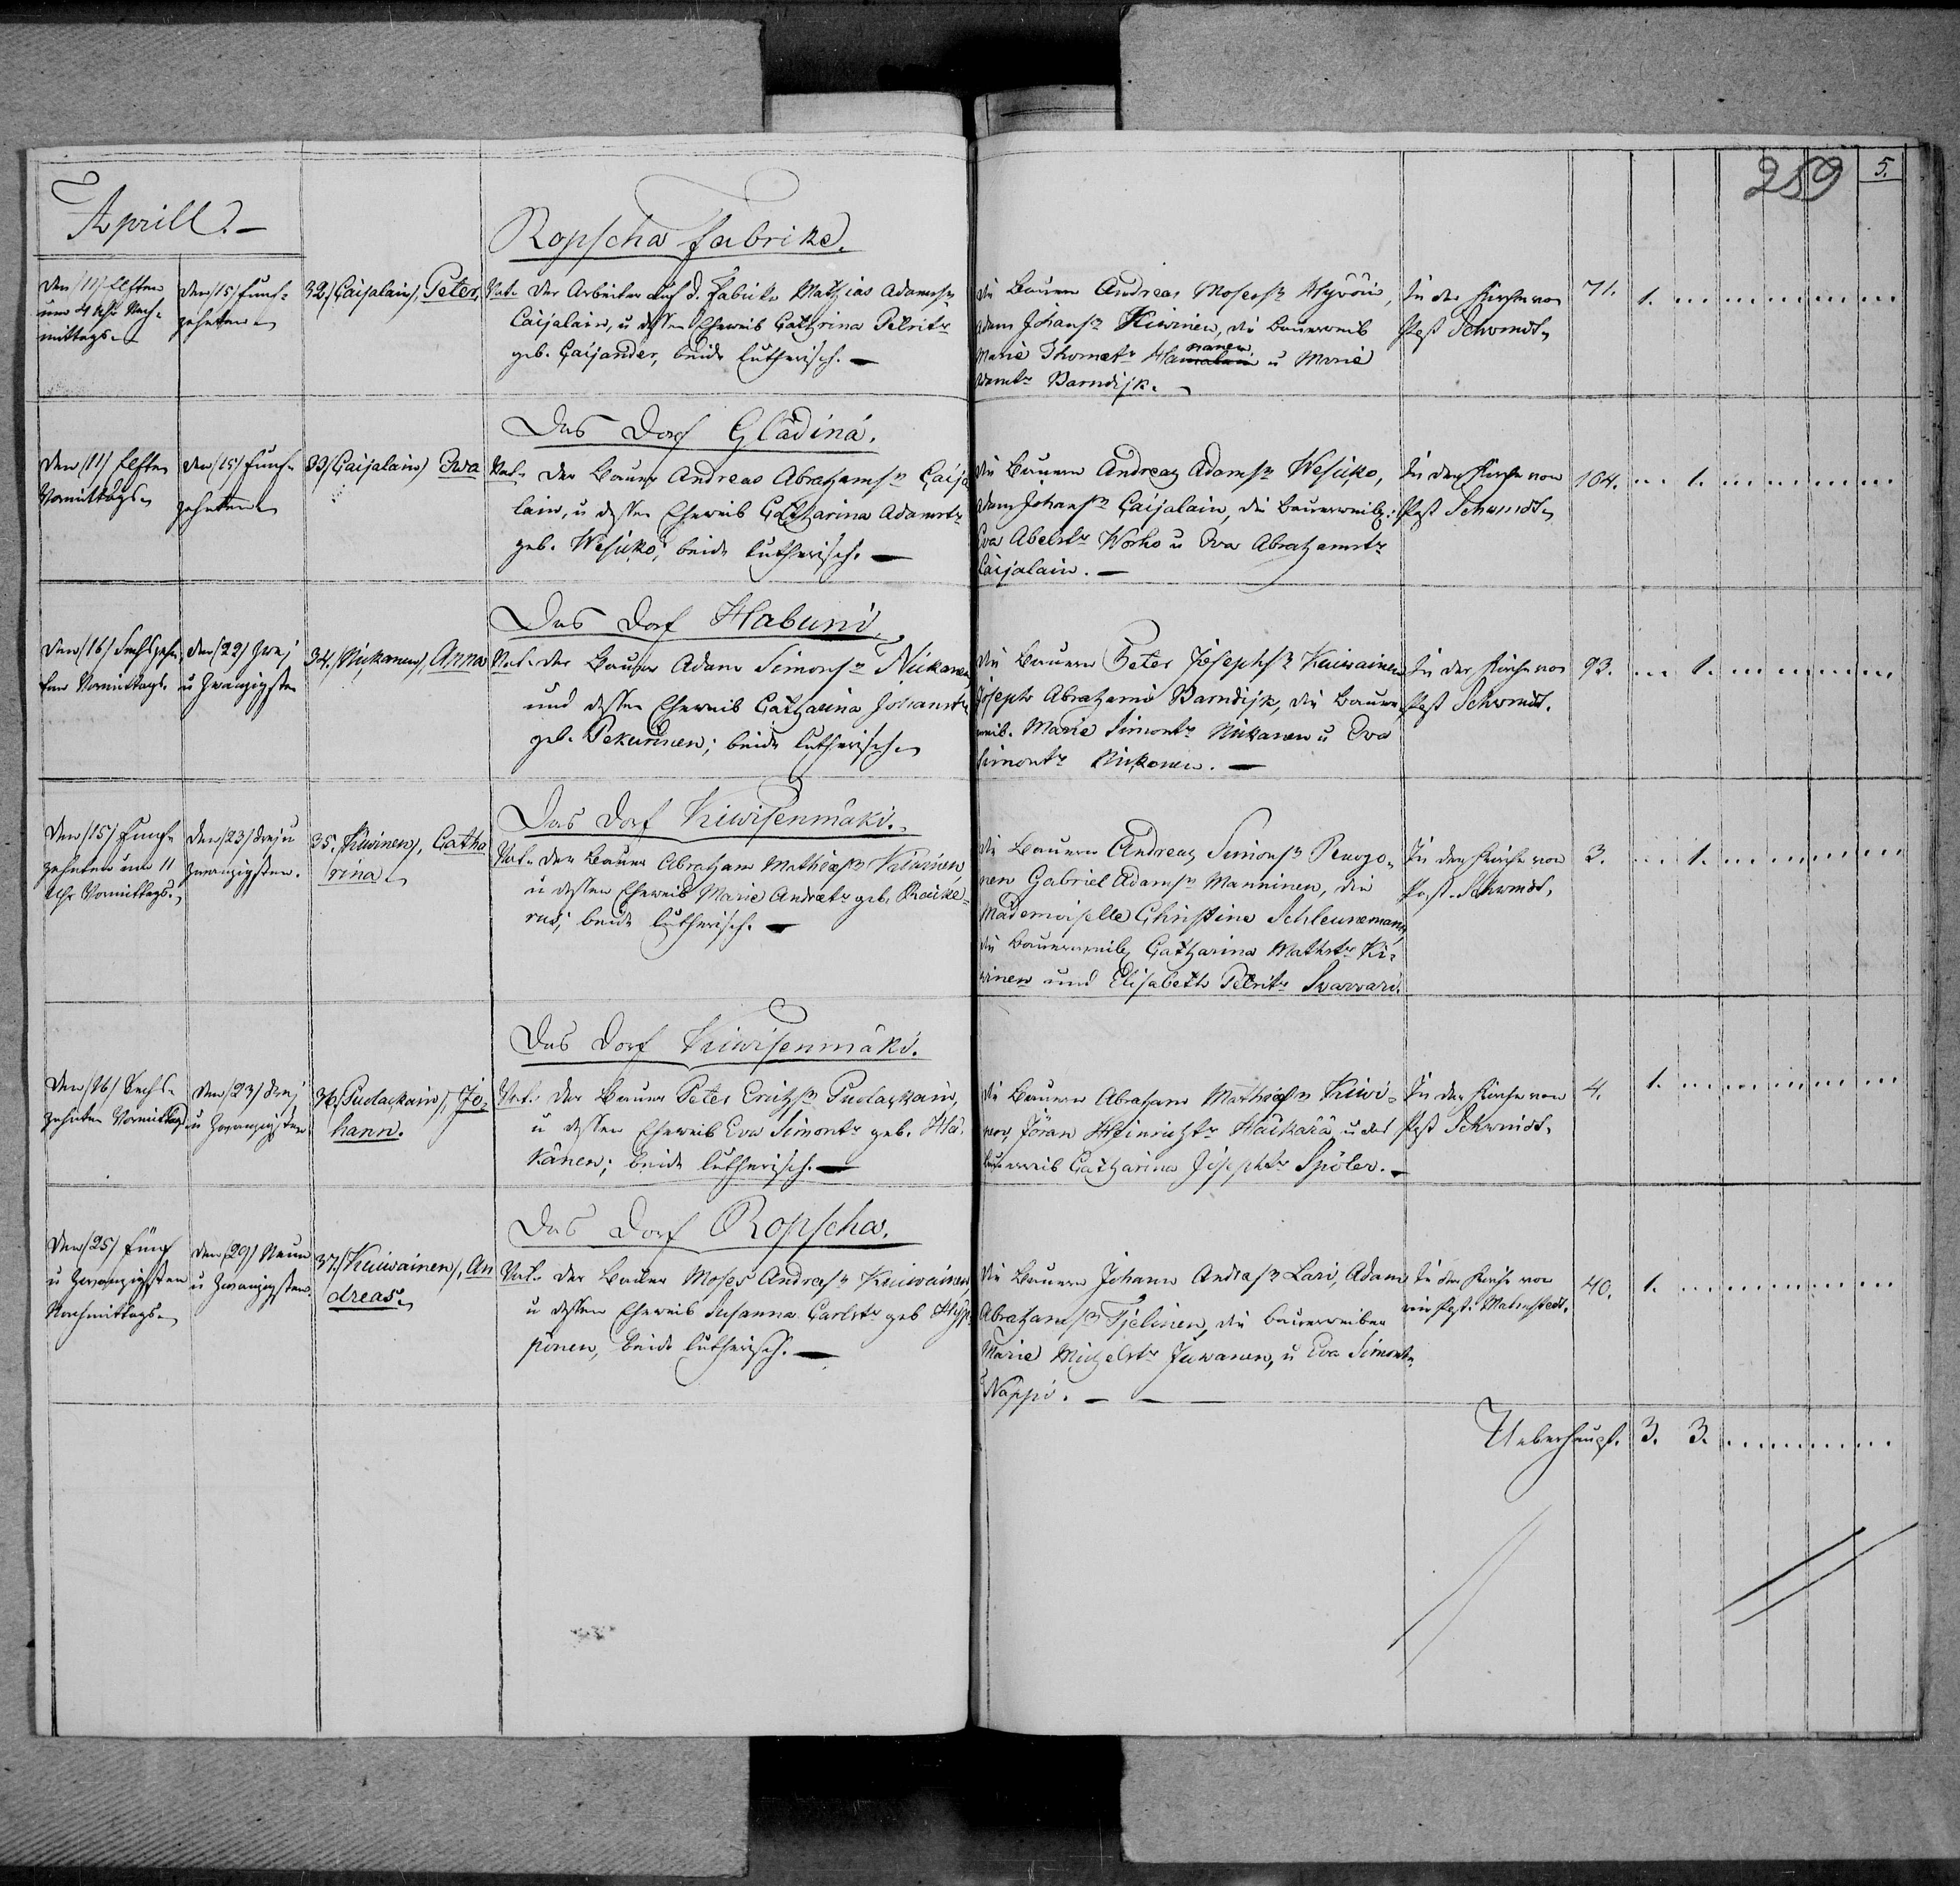 259
5.
Aprill. —
Ropscha Fabrike.
Den /11/ Elften
um 4 Uhr Nach-
mittags.
Den /15/ Funf-
zehnten
32./ Caijalain/, Peter.
Vat. Der Arbeiter auf d. Fabrike Mathias Adamsn
Caijalain, u dessen Eheweib Cathrina Petritr
geb. Caijander, beide lutherisch. —
Die Bauern Andreas Mosessn Hyvöin,
Adam Johansn Kiwinen, die Bauerweib
Marie Thomatr nanen u Marie
Barndijk.
In der Kirche von
Past Schwindt.
71.
1.
Das Dorf Gladina.
Den /11/ Elften
Vormittags
Den /15/ Funf-
zehnten
33/ Caijalain/ Ewa
Vat. Der Bauer Andreas Abrahamsn Caija
lain, u dessen Eheweib Catharina Adamstr
geb. Wesiko; beide lutherisch. —
Die Bauern Andreas Adamsn Wesiko,
Adam Johansn Caijalain, die Bauerweib:
Eva Abelstr Worho u Eva Abrahamstr
Caijalain. —
In der Kirche von
Past Schwindt
104.
1.
Das Dorf Habuni.
Den /16/ Sechszehn
ten Vormittags.
Den /22/ Zwej
u Zwanzigsten
34./ Nickanen/, Anna
Vat. Der Bauer Adam Simonsn Nickanen
und dessen Eheweib Catharina Johanstr
geb. Pekurinen; beide lutherisch
Die Bauern Peter Josephsn Kuiwainen
Joseph Abrahams Barndijk, die Bauer
weib. Marie Simontr Nickanen u Eva
Simontr Nickonen. —
In der Kirche von
Past Schwindt.
93.
1.
Das Dorf Kiwisenmäki.
Den /15/ Funf-
zehnten um 11
Uhr Vormittags.
Den /23/ Drej u
zwanzigsten.
35. Kiwinen/, Catha
rina
Vat. Der Bauer Abraham Mathiasn Kiwinen
u dessen Eheweib Marie Andretr geb. Raike-
rus; beide lutherisch. —
Die Bauern Andreas Simonsn
nen Gabriel Adamsn Manninen, die
Mademoiselle Christine Schleunemann
die Bauerweib Catharina Mathstr Ki-
winen und Elisabeth Petritr Swarvari.
In der Kirche von
Past. Schwindt.
3.
1.
Das Dorf Kiwisenmäki.
Den /16/ Sechs-
zehnten Vormittag
Den /23/ Drej
u Zwanzigsten
36./ Pudaskain/, Jo-
hann.
Vat. Der Bauer Peter Erichsn Pudaskain,
u dessen Eheweib Eva Simontr geb. Hä-
känen; beide lutherisch. —
Die Bauern Abraham Mathiasn Kiwi-
nen, Jöran Heinrichtr Häikärä u das
Bauerweib Catharina Josephtr Spöler. —
In der Kirche von
Past Schwindt.
4.
1.
Das Dorf Ropscha.
Den /25/ Fünf
u Zwanzigsten
Nachmittags
Den /29/ Neun
u Zwanzigsten.
37./ Kuiwainen/, An
dreas.
Vat. Der Bauer Moses Andreasn Kuiwainen,
u dessen Eheweib Susanna Carlstr geb Hyp-
pönen, beide lutherisch. —
Die Bauern Johann Andreasn Lari, Adam
Abrahamsn Tjelinen, die Bauerweiber
Marie Michelstr Juwanen, u Eva Simontr
Näppi. —
In der Kirche von
Past. Malmstedt.
40.
1.
Ueberhaupt. 3. 3.